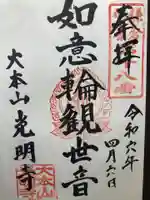 奉拝
令和六年
四月六日
如意輪観世音
大本山光明寺